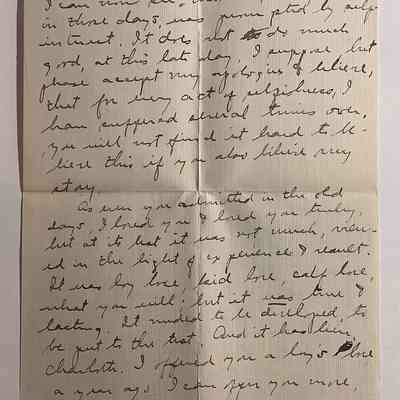 I can now see,
in those days, was prompted by self-
interest. It does not do much
good, at this late day, I suppose but
please accept my apologies & believe,
that for every act of selfishness, I
have suffered several times over,
you will not find it hard to be-
lieve this if you also believe my
story.
As even you admitted in the old
days, I loved you & loved you truly,
but at its best it was not much, view-
ed in the light of experience & result.
It was boy love, kid love, calf love,
what you will: but it was true &
lasting. It needed to be developed, to
be put to the test. And it has been,
Charlotte. I offered you a boy's love
a year ago. I can offer you more,